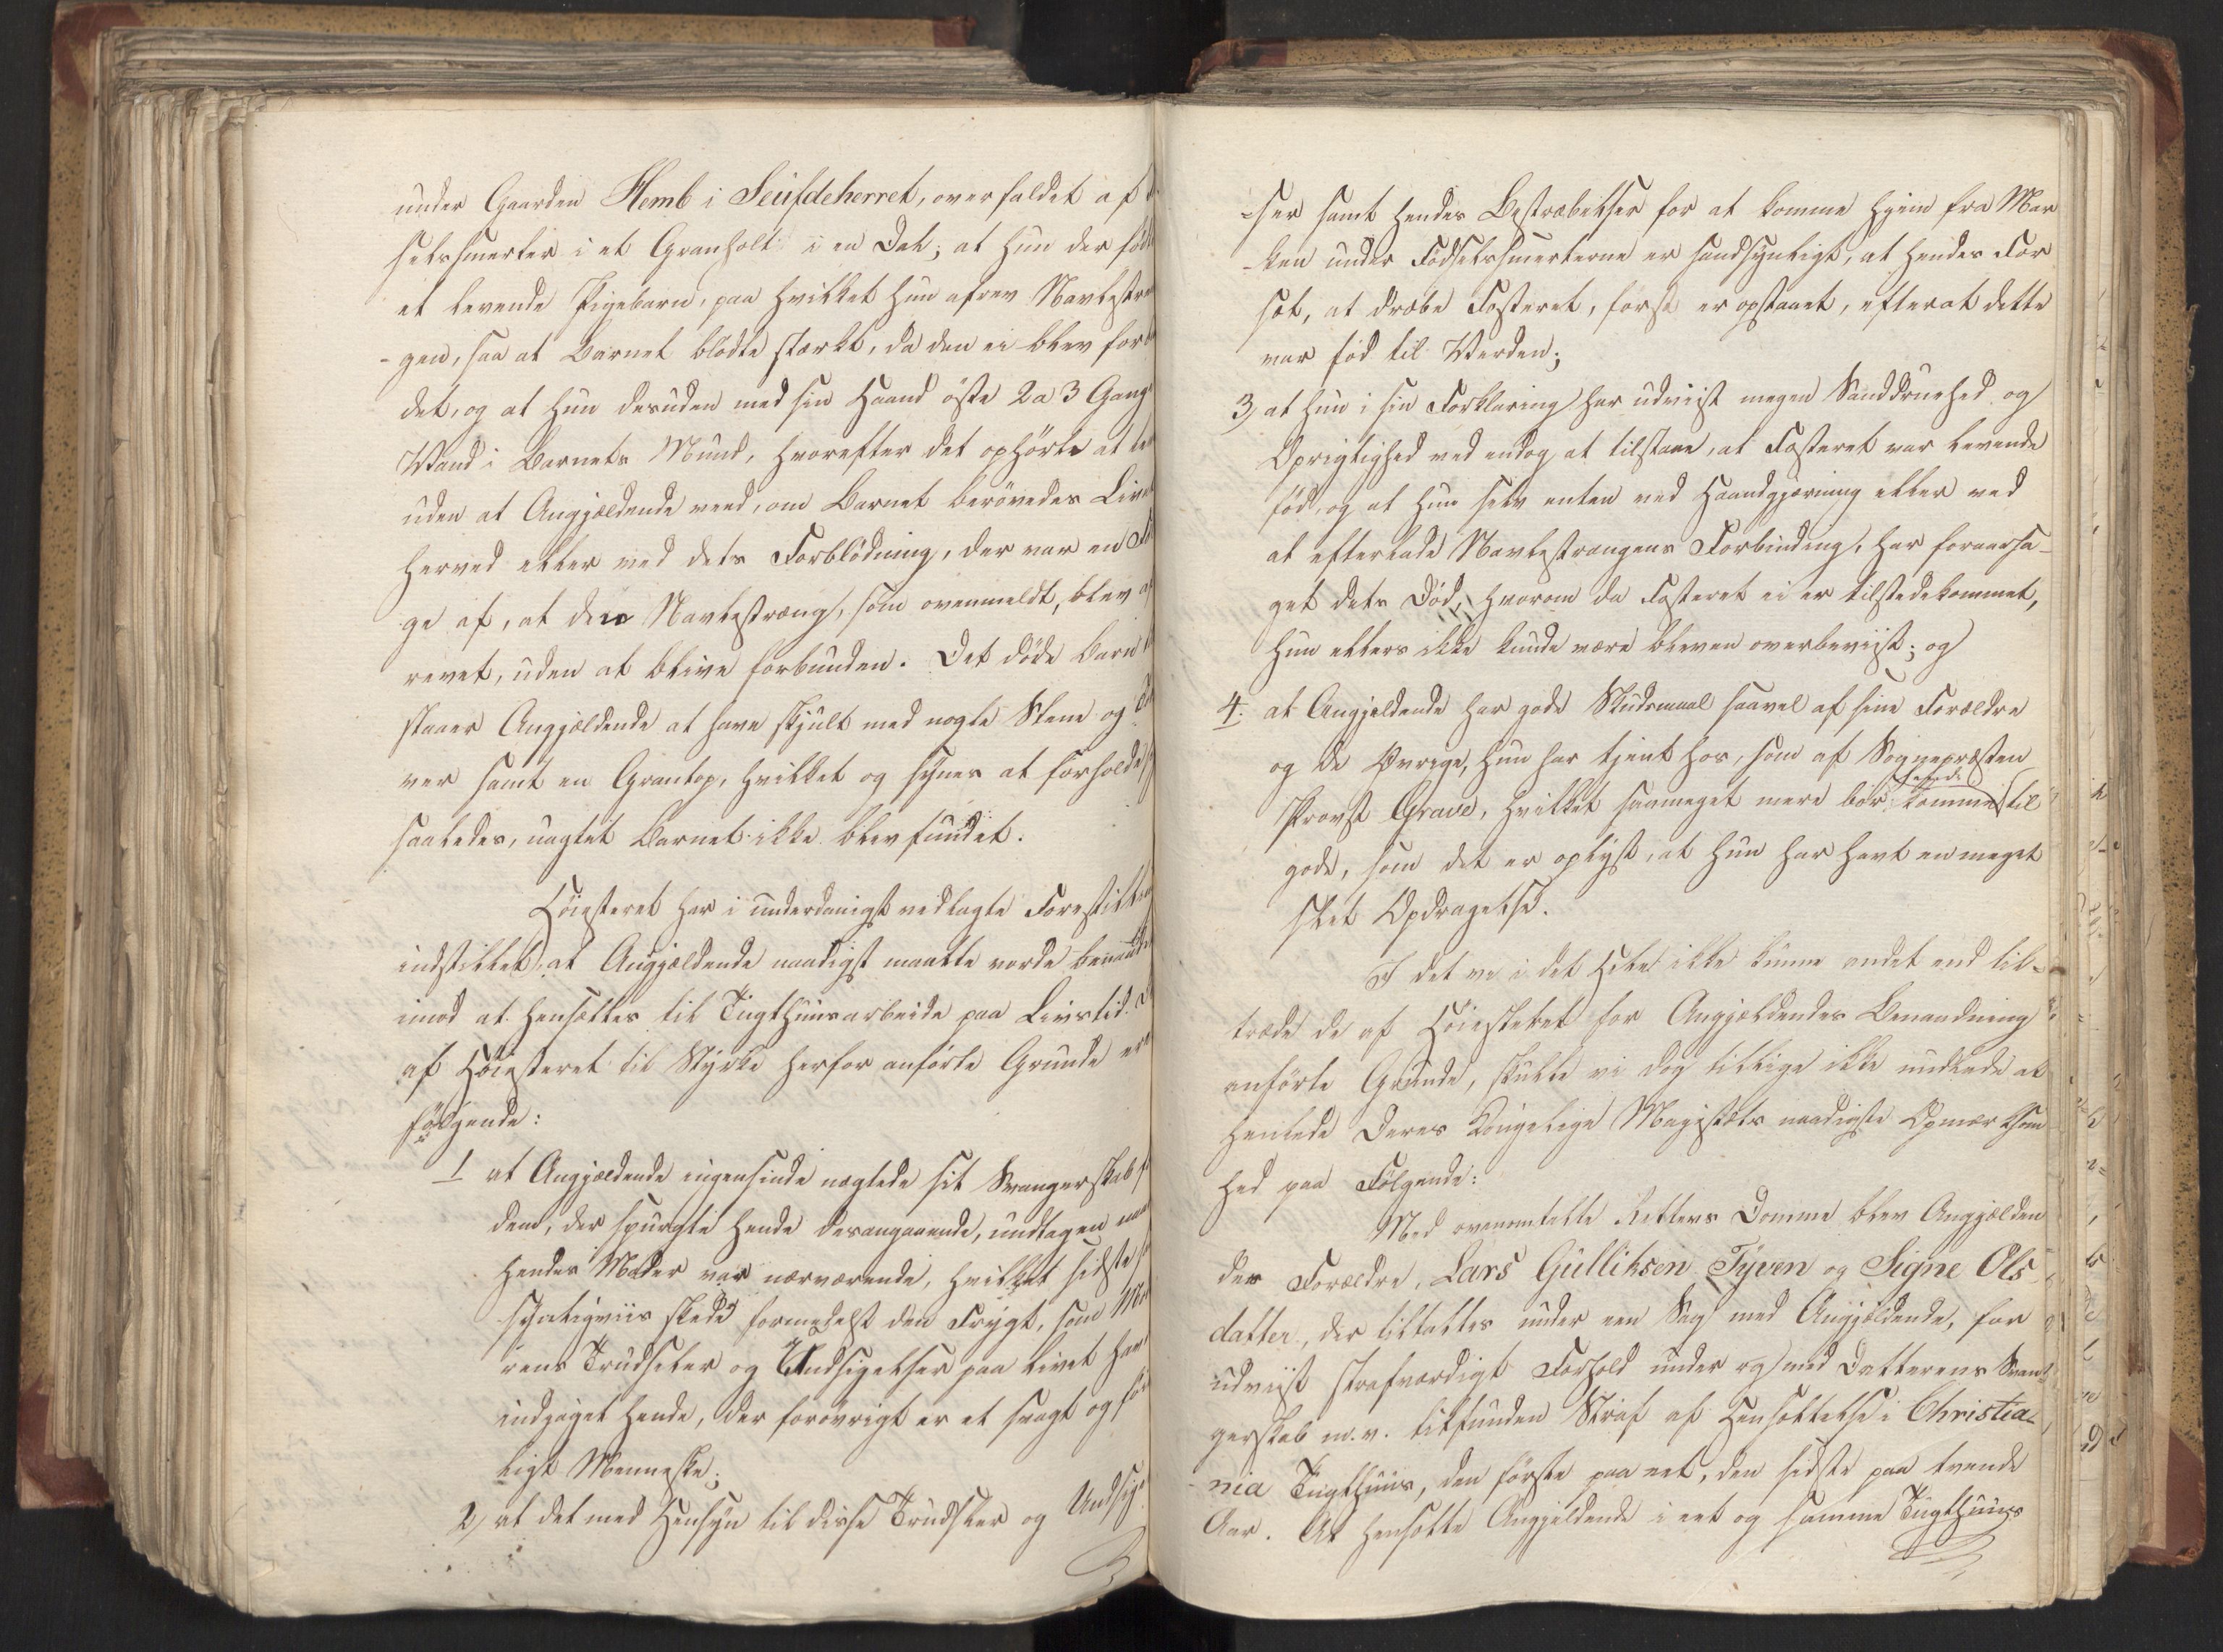 under Gaarden Hemb i Seufdeherret, overfaldet af
selssmerter i et Granholt i en Dal; at hun der fød
et levende Pigebarn, paa hvilket hun afrev Navlestræn
-gen, saa at Barnet blødte stærkt, da den ei blev for
det, og at hun desuden med sin Haand øste 2 a 3 Gang
Vand i Barnets Mund, hvorefter det ophørte at le
uden at Angjældende veed, om Barnet berøvedes Live
herved eller ved dets Forblødning, der var en Fø
ge af, at den Navlestræng, som ovenmeldt, blev af
revet, uden at blive forbunden. Det døde Barn
staaer Angjældende at have skjult med nogle Stene og
ver samt en Grantop, hvilket og synes at forholde
saaledes, uagtet Barnet ikke blev fundet.
Høiesteret har i underdanigst vedlagte Forestill
indstillet, at Angjældende naadigst maatte vorde benaad
imod at hensættes til Tugthuusarbeide paa Livstid.
af Høiesteret til Styrke herfor anførte Grunde er
følgende:
1 at Angjældende ingensinde nægtede sit Svangerskab f
dem, der spurgte hende desangaaende, undtagen naa
hendes Moder var nærværende, hvilket sidste
skeligviis skede formedelst den Frygt, som Mo
rens Trudsler og Undsigelser paa Livet hav
indjaget hende, der forøvrigt er et svagt og
ligt Menneske;
2, at det med Hensyn til disse Trudsler og Undsig
-ser samt hendes Bestræbelser for at komme hjem fra Mar
-ken under Fødselssmerterne er sandsynligt, at hendes For
sæt, at dræbe Fosteret, først er opstaaet, efterat dette
var fød til Verden;
3, at hun i sin Forklaring har udviist megen Sanddruehed og
Oprigtighed ved endog at tilstaae, at Fosteret var levende
fød, og at hun selv enten ved Haandgjærning eller ved
at efterlade Navlestrængens Forbinding, har foraarsa-
get dets Død, hvorom da Fosteret ei er tilstedekommet,
hun ellers ikke kunde være bleven overbeviist; og
4. at Angjeldende har gode Skudsmaal saavel af sine Forældre
og de Øvrige, hun har tjent hos, som af Sognepræsten
Provst Grave, hvilket saameget mere bør hende komme til
gode, som det er oplyst, at hun har havt en meget
slet Opdragelse.
I det vi i det Hele ikke kunne andet end til-
træde de af Høiesteret for Angjeldendes Benaadning
anførte Grunde, skulle vi dog tillige ikke undlade at
henlede Deres Kongelige Majestæts naadigste Opmærksom
hed paa Følgende:
Med ovenomtalte Retters Domme blev Angjælden
des Forældre, Lars Gulliksen Tyven og Signe Ols
datter, der tiltaltes under een Sag med Angjældende, for
udviist strafværdigt Forhold under og med Datterens Svan-
gerskab m. v. tilfunden Straf af Hensættelse i Christia-
-nia Tugthuus, den første paa eet, den sidste paa tvende
Aar. At hensætte Angjeldende i eet og samme Tugthuus